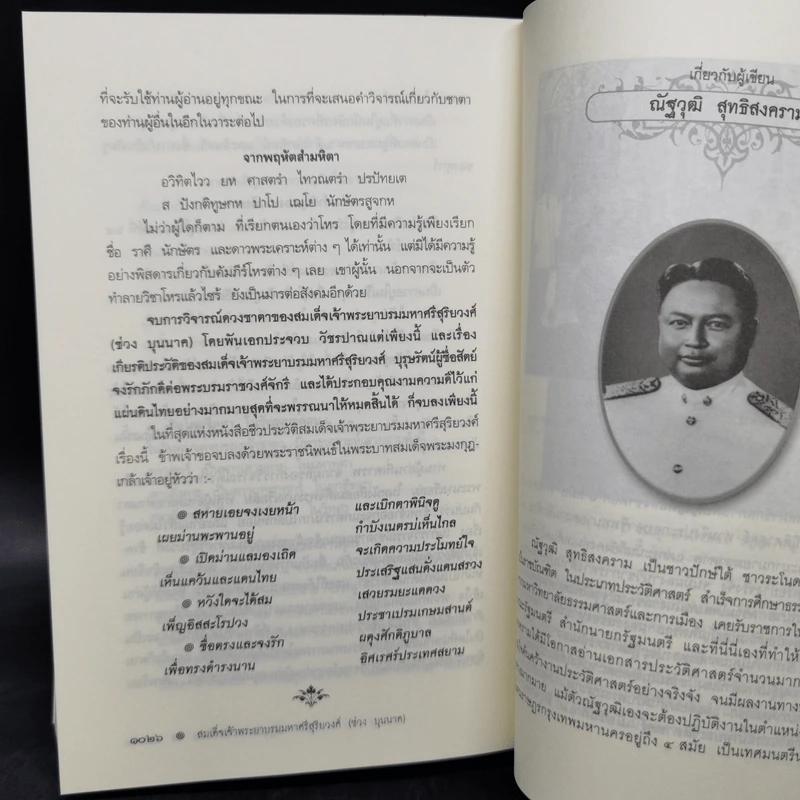 ที่จะรับใช้ท่านผู้อ่านอยู่ทุกขณะ ในการที่จะเสนอคำวิจารณ์เกี่ยวกับชาตา
ของท่านผู้อื่นในอีกในวาระต่อไป
จากพฤหัตสํามหิตา
อวิทิตไวว ยห ศาสตรํา ไทวณตรํา ปรปัทยเต
ส ปังกติทูษกห ปาโป เฌโย นักษัตรสูจกห
ไม่ว่าผู้ใดก็ตาม ที่เรียกตนเองว่าโหร โดยที่มีความรู้เพียงเรียก
ชื่อ ราศี นักษัตร และดาวพระเคราะห์ต่าง ๆ ได้เท่านั้น แต่มิได้มีความรู้
อย่างพิสดารเกี่ยวกับคัมภีร์โหรต่าง ๆ เลย เขาผู้นั้น นอกจากจะเป็นตัว
ทำลายวิชาโหรแล้วไซร้ ยังเป็นมารต่อสังคมอีกด้วย
จบการวิจารณ์ดวงชาตาของสมเด็จเจ้าพระยาบรมมหาศรีสุริยวงศ์
(ช่วง บุนนาค) โดยพันเอกประจวบ วัชรปาณแต่เพียงนี้ และเรื่อง
เกียรติประวัติของสมเด็จเจ้าพระยาบรมมหาศรีสุริยวงศ์ บุรุษรัตน์ผู้ซื่อสัตย์
จงรักภักดีต่อพระบรมราชวงศ์จักรี และได้ประกอบคุณงามความดีไว้แก่
แผ่นดินไทยอย่างมากมายสุดที่จะพรรณนาให้หมดสิ้นได้ ก็จบลงเพียงนี้
ในที่สุดแห่งหนังสือชีวประวัติสมเด็จเจ้าพระยาบรมมหาศรีสุริยวงศ์
เรื่องนี้ ข้าพเจ้าขอจบลงด้วยพระราชนิพนธ์ในพระบาทสมเด็จพระมงกุฎ-
เกล้าเจ้าอยู่หัวว่า :-
๏ สหายเอยจงเงยหน้า และเบิกตาพินิจดู
เผยม่านพะพานอยู่ กำบังเนตรบ่เห็นไกล
๏ เปิดม่านแลมองเถิด จะเกิดความประโมทย์ใจ
เห็นแคว้นและแดนไทย ประเสริฐแสนดั่งแดนสรวง
๏ หวังใดจะได้สม เสวยรมยะแดดวง
เพ็ญอิสสะโรปวง ประชาเปรมเกษมสานต์
๏ ซื่อตรงและจงรัก ผดุงศักดิภูบาล
เพื่อทรงดำรงนาน อิศเรศร์ประเทศสยาม
๑๐๒๖ ๏ สมเด็จเจ้าพระยาบรมมหาศรีสุริยวงศ์ (ช่วง บุนนาค)
เกี่ยวกับผู้เขียน
ณัฐวุฒิ สุทธิสงคราม
ณัฐวุฒิ สุทธิสงคราม เป็นชาวปักษ์ใต้ ชาวระโนด
ในราชบัณฑิต ในประเภทประวัติศาสตร์ สำเร็จการศึกษาธรร
มหาวิทยาลัยธรรมศาสตร์และการเมือง เคยรับราชการใน
รัฐมนตรี สำนักนายกรัฐมนตรี และที่นี่นี่เองที่ทำให้
ได้มีโอกาสอ่านเอกสารประวัติศาสตร์จำนวนมาก
ค้นคว้างานประวัติศาสตร์อย่างจริงจัง จนมีผลงานทาง
มากมาย แม้ตัวณัฐวุฒิเองจะต้องปฏิบัติงานในตำแหน่ง
ราษฎรกรุงเทพมหานครอยู่ถึง ๔ สมัย เป็นเทศมนตรี